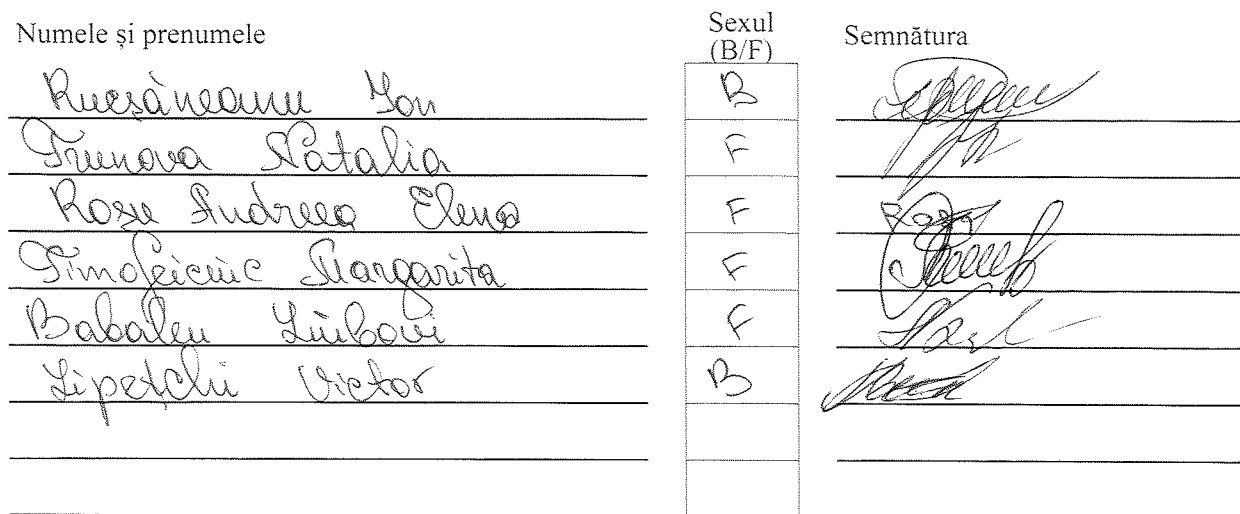 Numele și prenumele Sexul (B/F) Semnătura
Rucsăneanu Ion B
Trunova Natalia F
Roșu Andreea Elena F
Timofeiciuc Margarita F
Babaleu Liubovi F
Lipețchi Victor B